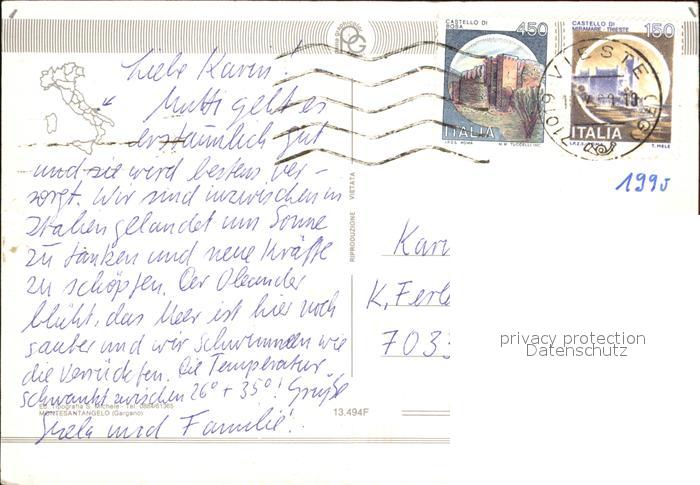 CASTELLO DI
ROSA
450
ITALIA
I.P.Z.S. ROMA
CASTELLO DI
MIRAMARE - TRIESTE
150
ITALIA
I.P.Z.S. ROMA
T. MELE
71019 VIESTE (FG)
1995
Liebe Karin!
Mutti geht es
erstaunlich gut
und sie wird bestens ver-
sorgt. Wir sind inzwischen in
Italien gelandet um Sonne
zu tanken und neue Kräfte
zu schöpfen. Der Oleander
blüht, das Meer ist hier noch
sauber und wir schwimmen wie
die Verrückten. Die Temperatur
schwankt zwischen 26° + 35°! Grüße
und Familie!
RIPRODUZIONE VIETATA
Ed. Tipografia S. Michele - Tel. 0884/61365
MONTESANTANGELO (Gargano)
13.494F
K. Ferl
703
privacy protection
Datenschutz